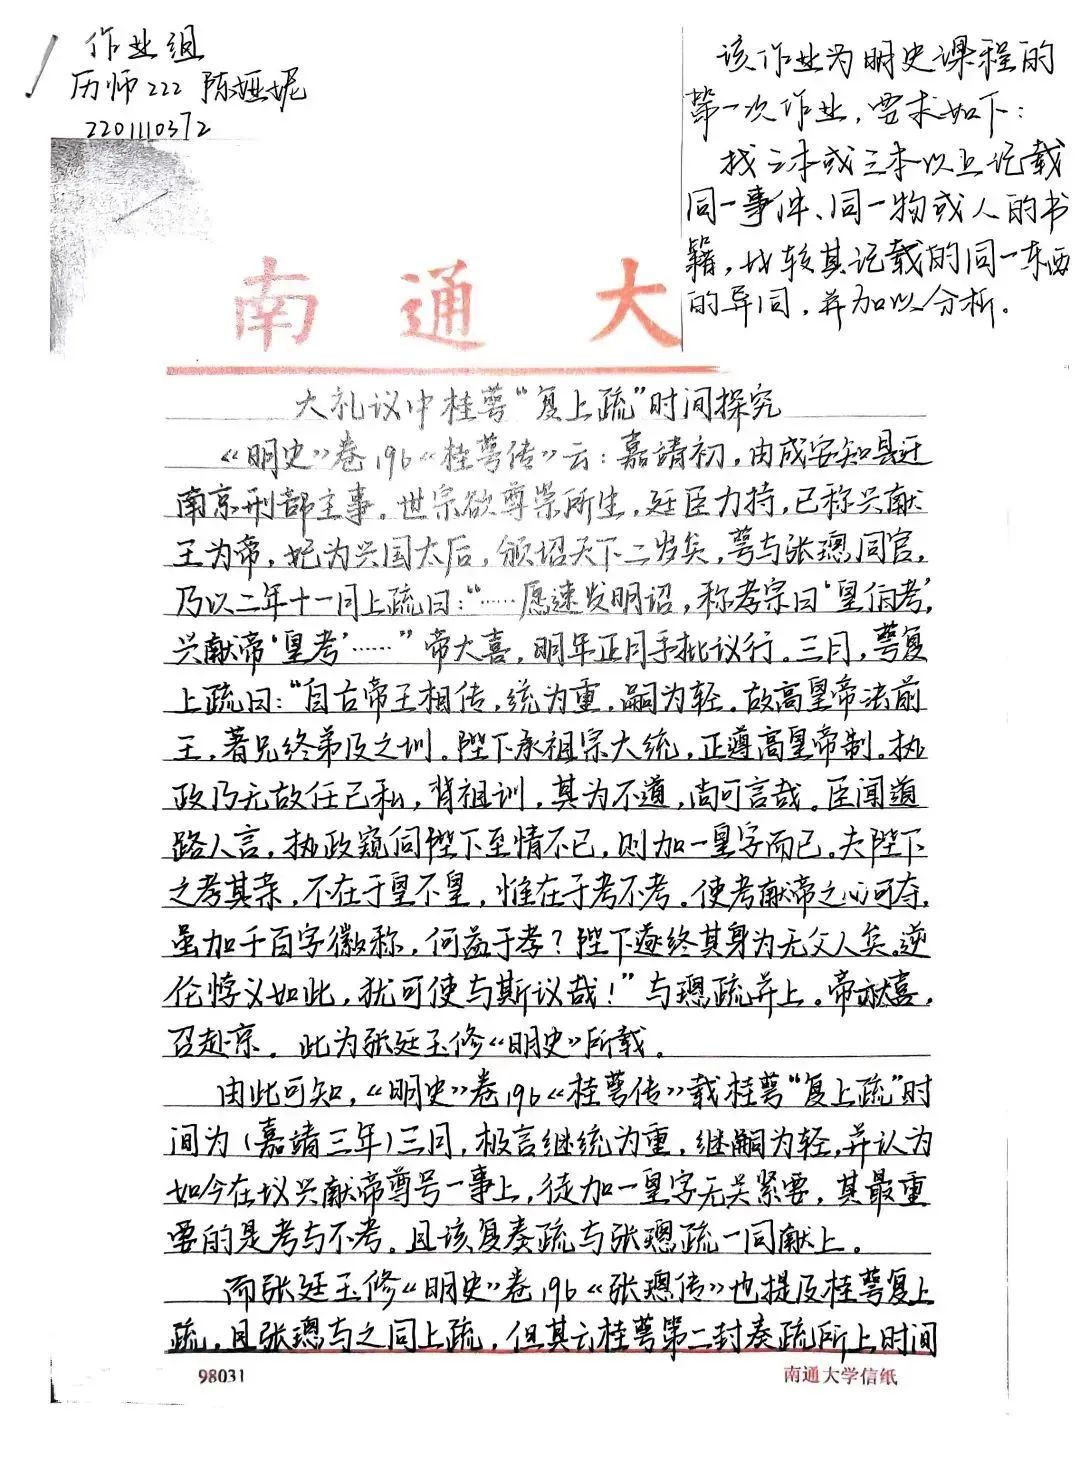 作业组
历师222 陈娅妮
2201110372
该作业为明史课程的
第一次作业，要求如下：
找三本或三本以上记载
同一事件、同一物或人的书
籍，比较其记载的同一东西
的异同，并加以分析。
南通大
大礼议中桂萼“复上疏”时间探究
《明史》卷196《桂萼传》云：嘉靖初，由成安知县迁
南京刑部主事。世宗欲尊崇所生，廷臣力持，已称兴献
王为帝，妃为兴国太后，颁诏天下二岁矣，萼与张璁同官，
乃以二年十一月上疏曰：“……愿速发明诏，称孝宗曰‘皇伯考’，
兴献帝‘皇考’……”帝大喜，明年正月手批议行。三月，萼复
上疏曰：“自古帝王相传，统为重，嗣为轻。故高皇帝法前
王，著兄终弟及之训。陛下承祖宗大统，正遵高皇帝制。执
政乃无故任己私，背祖训，其为不道，尚可言哉。臣闻道
路人言，执政窥伺陛下至情不已，则加一皇字而已。夫陛下
之考其亲，不在于皇不皇，惟在于考不考。使考献帝之心可夺，
虽加千百字徽称，何益于孝？陛下遂终其身为无父人矣。逆
伦悖义如此，犹可使与斯议哉！”与璁疏并上。帝益喜，
召赴京。此为张廷玉修《明史》所载。
由此可知，《明史》卷196《桂萼传》载桂萼“复上疏”时
间为（嘉靖三年）三月，极言继统为重，继嗣为轻，并认为
如今在议兴献帝尊号一事上，徒加一皇字无关紧要，其最重
要的是考与不考。且该复奏疏与张璁疏一同献上。
而张廷玉修《明史》卷196《张璁传》也提及桂萼复上
疏，且张璁与之同上疏，但其云桂萼第二封奏疏所上时间
98031
南通大学信纸